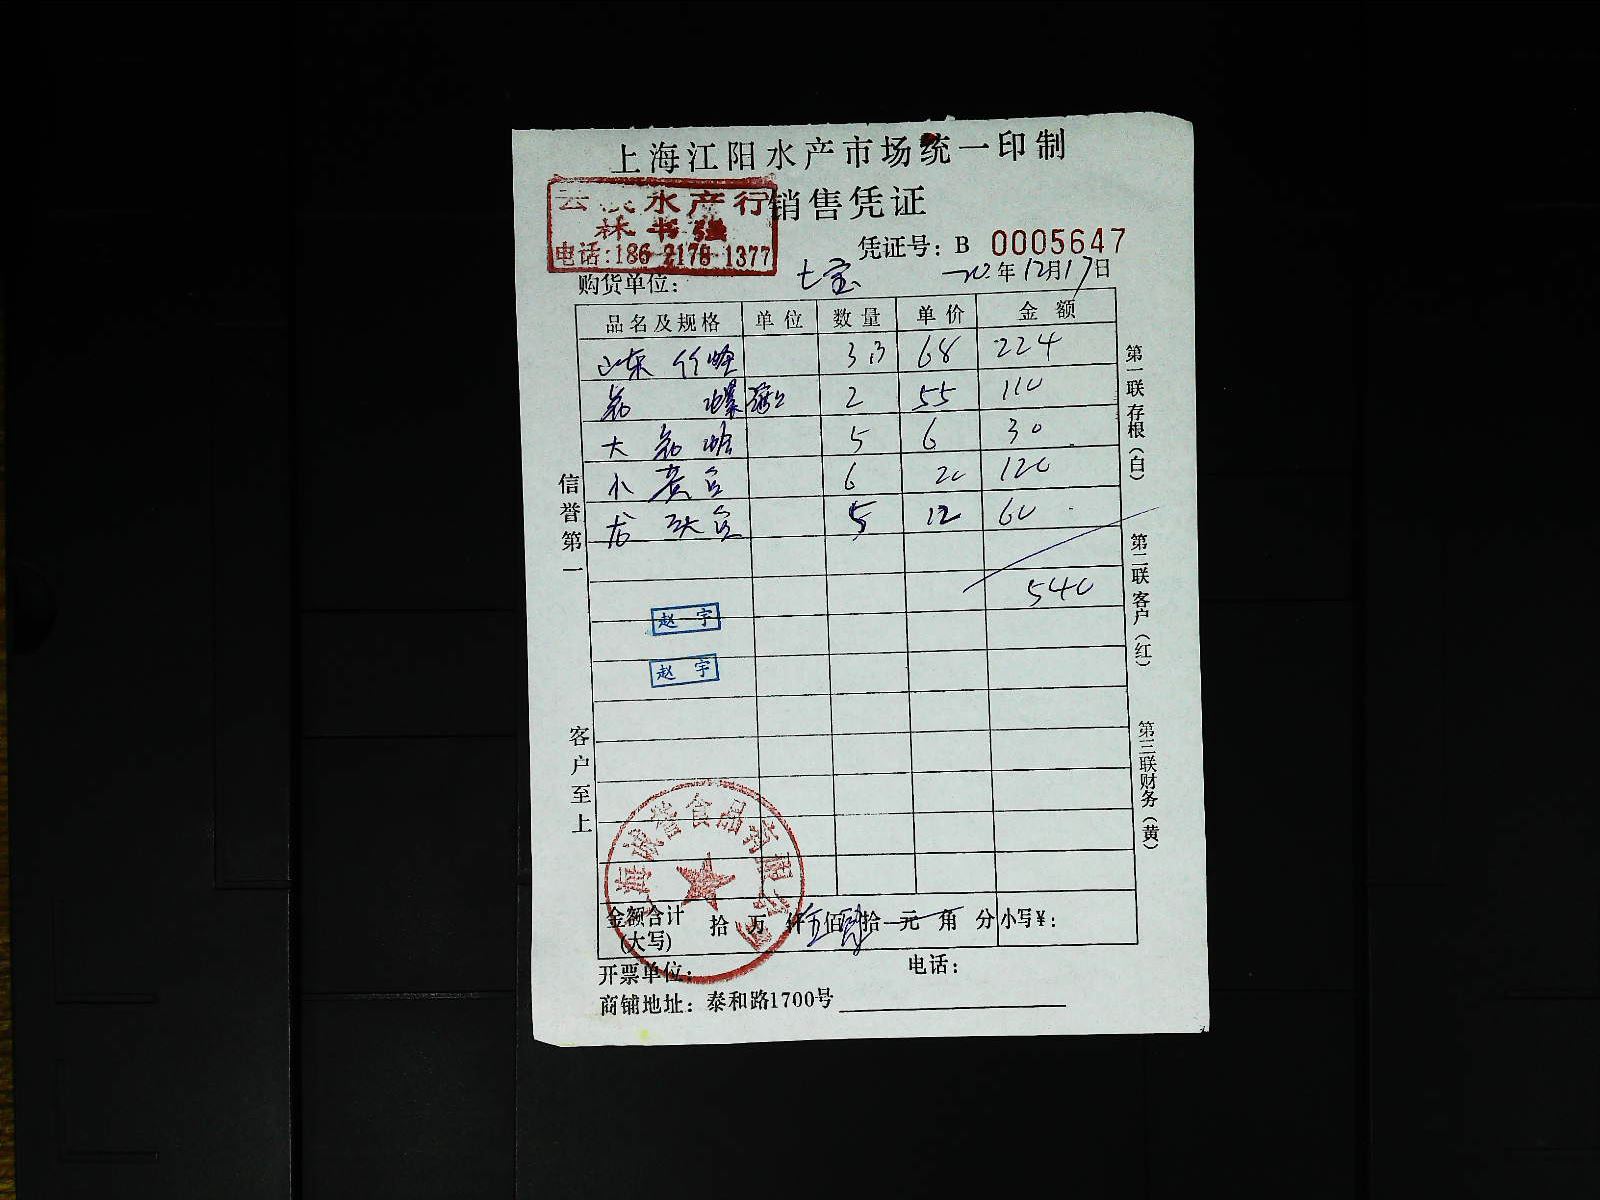 上海江阳水产市场统一印制
销售凭证
水产行
林书强
电话:186 2178 1377
凭证号: B 0005647
购货单位: 七宝 20年12月17日
品名及规格 单位 数量 单价 金额
山东 竹蛏 3.3 68 224
2 55 110
大 5 6 30
小 黄 6 20 120
龙 5 12 60
540
赵 宇
赵 宇
信誉第一
客户至上
第一联存根(白)
第二联客户(红)
第三联财务(黄)
上海诚誉食品有限公司
金额合计(大写) 拾 万 仟伍佰肆拾 元 角 分 小写¥:
开票单位: 电话:
商铺地址: 泰和路1700号